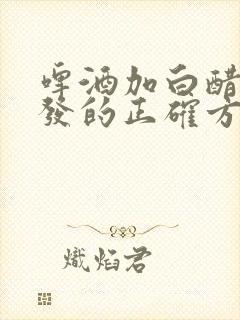 啤酒加白醋
發的正確方
熾焰君